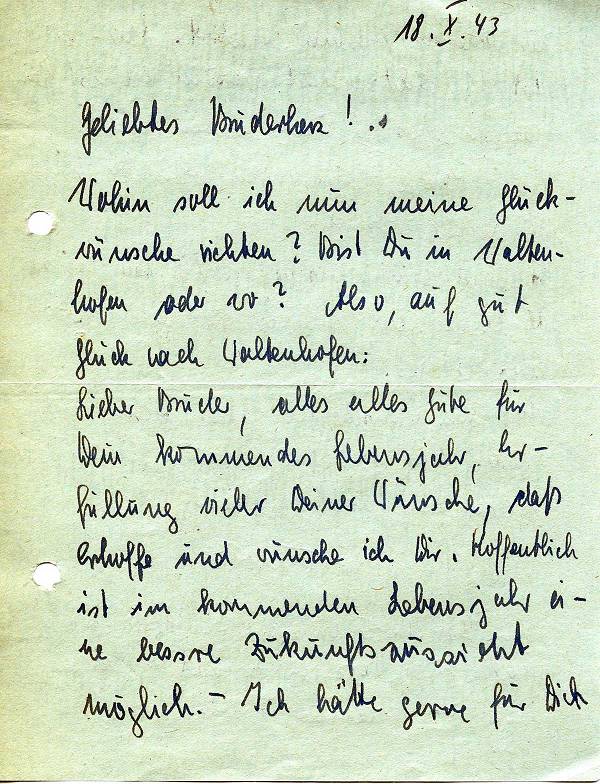 18.X.43
Geliebtes Bruderherz!
Wohin soll ich nun meine Glück-
wünsche richten? Bist Du in Walten-
hofen oder wo? Also, auf gut
Glück nach Waltenhofen:
Lieber Bruder, alles alles Gute für
Dein kommendes Lebensjahr, Er-
füllung vieler Deiner Wünsche, daß
erhoffe und wünsche ich Dir. Hoffentlich
ist im kommenden Lebensjahr ei-
ne bessre Zukunftsaussicht
möglich. – Ich hätte gerne für Dich